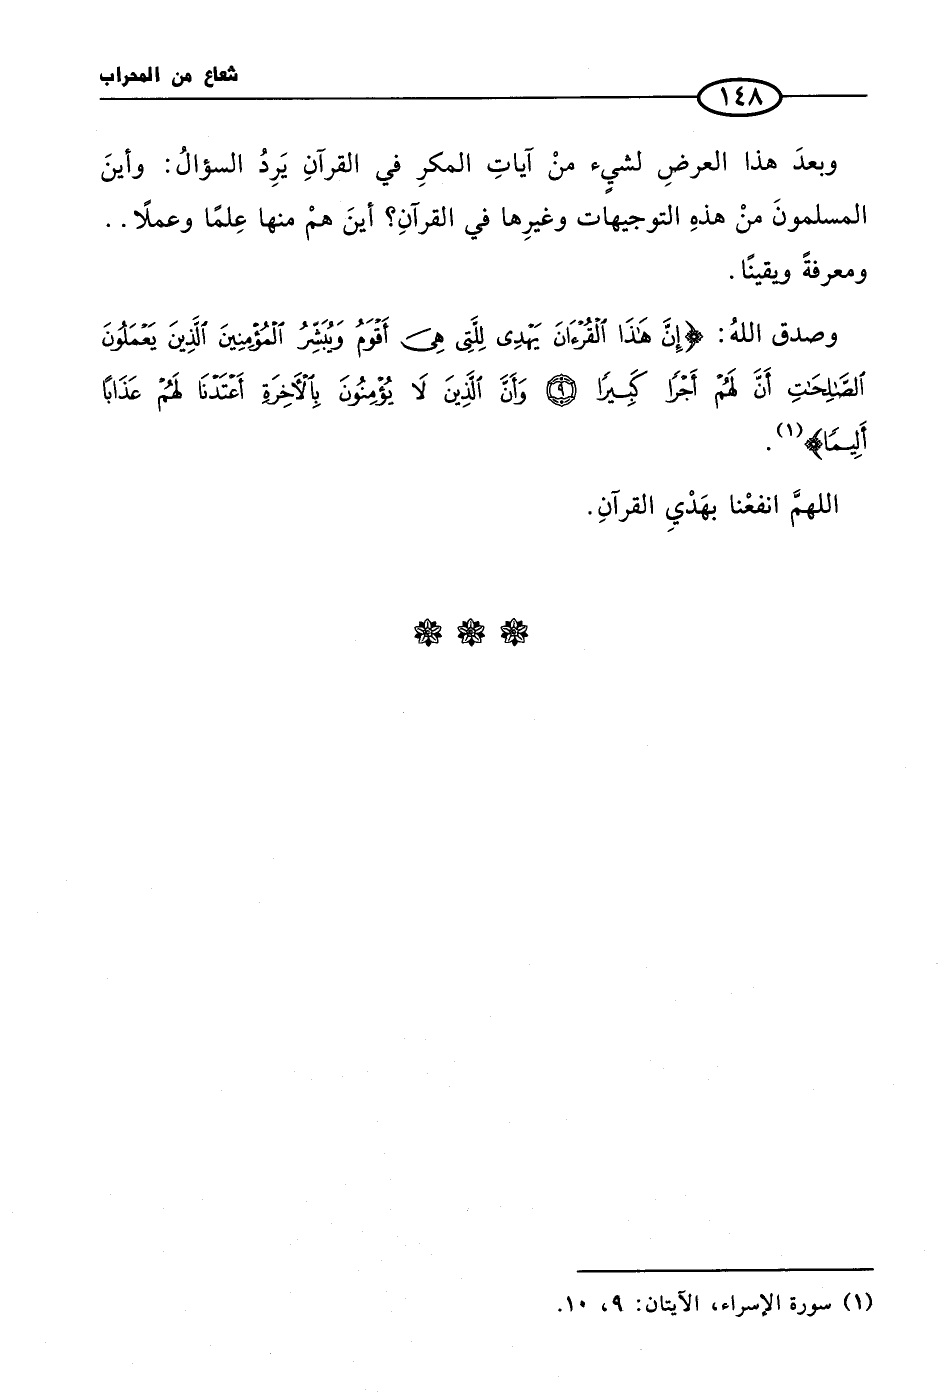 شعاع من المحراب
١٤٨
وبعدَ هذا العرضِ لشيءٍ منْ آياتِ المكرِ في القرآنِ يَرِدُ السؤالُ: وأينَ
المسلمونَ منْ هذهِ التوجيهات وغيرِها في القرآنِ؟ أينَ همْ منها عِلمًا وعملًا..
ومعرفةً ويقينًا.
وصدق اللهُ: ﴿إِنَّ هَٰذَا ٱلْقُرْءَانَ يَهْدِى لِلَّتِى هِىَ أَقْوَمُ وَيُبَشِّرُ ٱلْمُؤْمِنِينَ ٱلَّذِينَ يَعْمَلُونَ
ٱلصَّٰلِحَٰتِ أَنَّ لَهُمْ أَجْرًا كَبِيرًا ۝٩ وَأَنَّ ٱلَّذِينَ لَا يُؤْمِنُونَ بِٱلْءَاخِرَةِ أَعْتَدْنَا لَهُمْ عَذَابًا
أَلِيمًا﴾(١).
اللهمَّ انفعْنا بهَدْيِ القرآنِ.
(١) سورة الإسراء، الآيتان: ٩، ١٠.